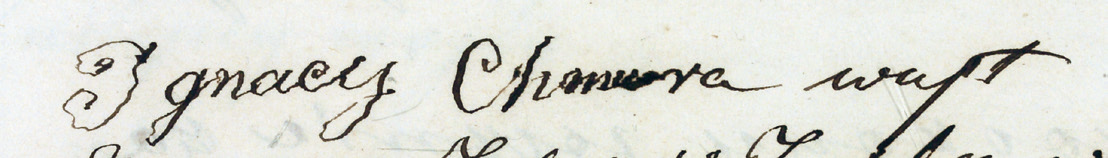 Ignacy Chmura wujt